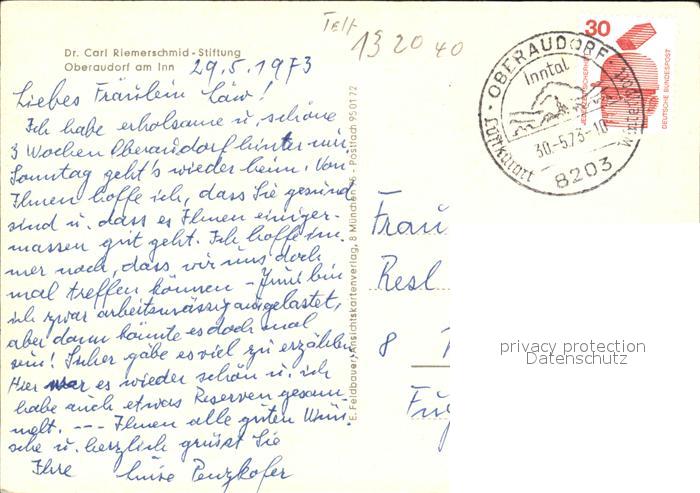 Telf
13 20 40
Dr. Carl Riemerschmid-Stiftung
Oberaudorf am Inn
29.5.1973
Liebes Fräulein Löw!
Ich habe erholsame u. schöne
3 Wochen Oberaudorf hinter mir,
Sonntag geht's wieder heim. Von
Ihnen hoffe ich, dass Sie gesund
sind u. dass es Ihnen einiger-
massen gut geht. Ich hoffe im-
mer noch, dass wir uns doch
mal treffen können – Juni bin
ich zwar arbeitsmässig ausgelastet,
aber dann könnte es doch mal
sein! Sicher gäbe es viel zu erzählen.
Hier war es wieder schön u. ich
habe auch etwas Reserven gesam-
melt. --- Ihnen alle guten Wün-
sche u. herzlich grüsst Sie
Ihre Luise Penzkofer
E. Feldbauer, Ansichtskartenverlag, 8 München - Postfach 950172
Frau
Resl
8
30
DEUTSCHE BUNDESPOST
OBERAUDORF
Inntal
Luftkurort
30.-5.73-10
8203
privacy protection
Datenschutz